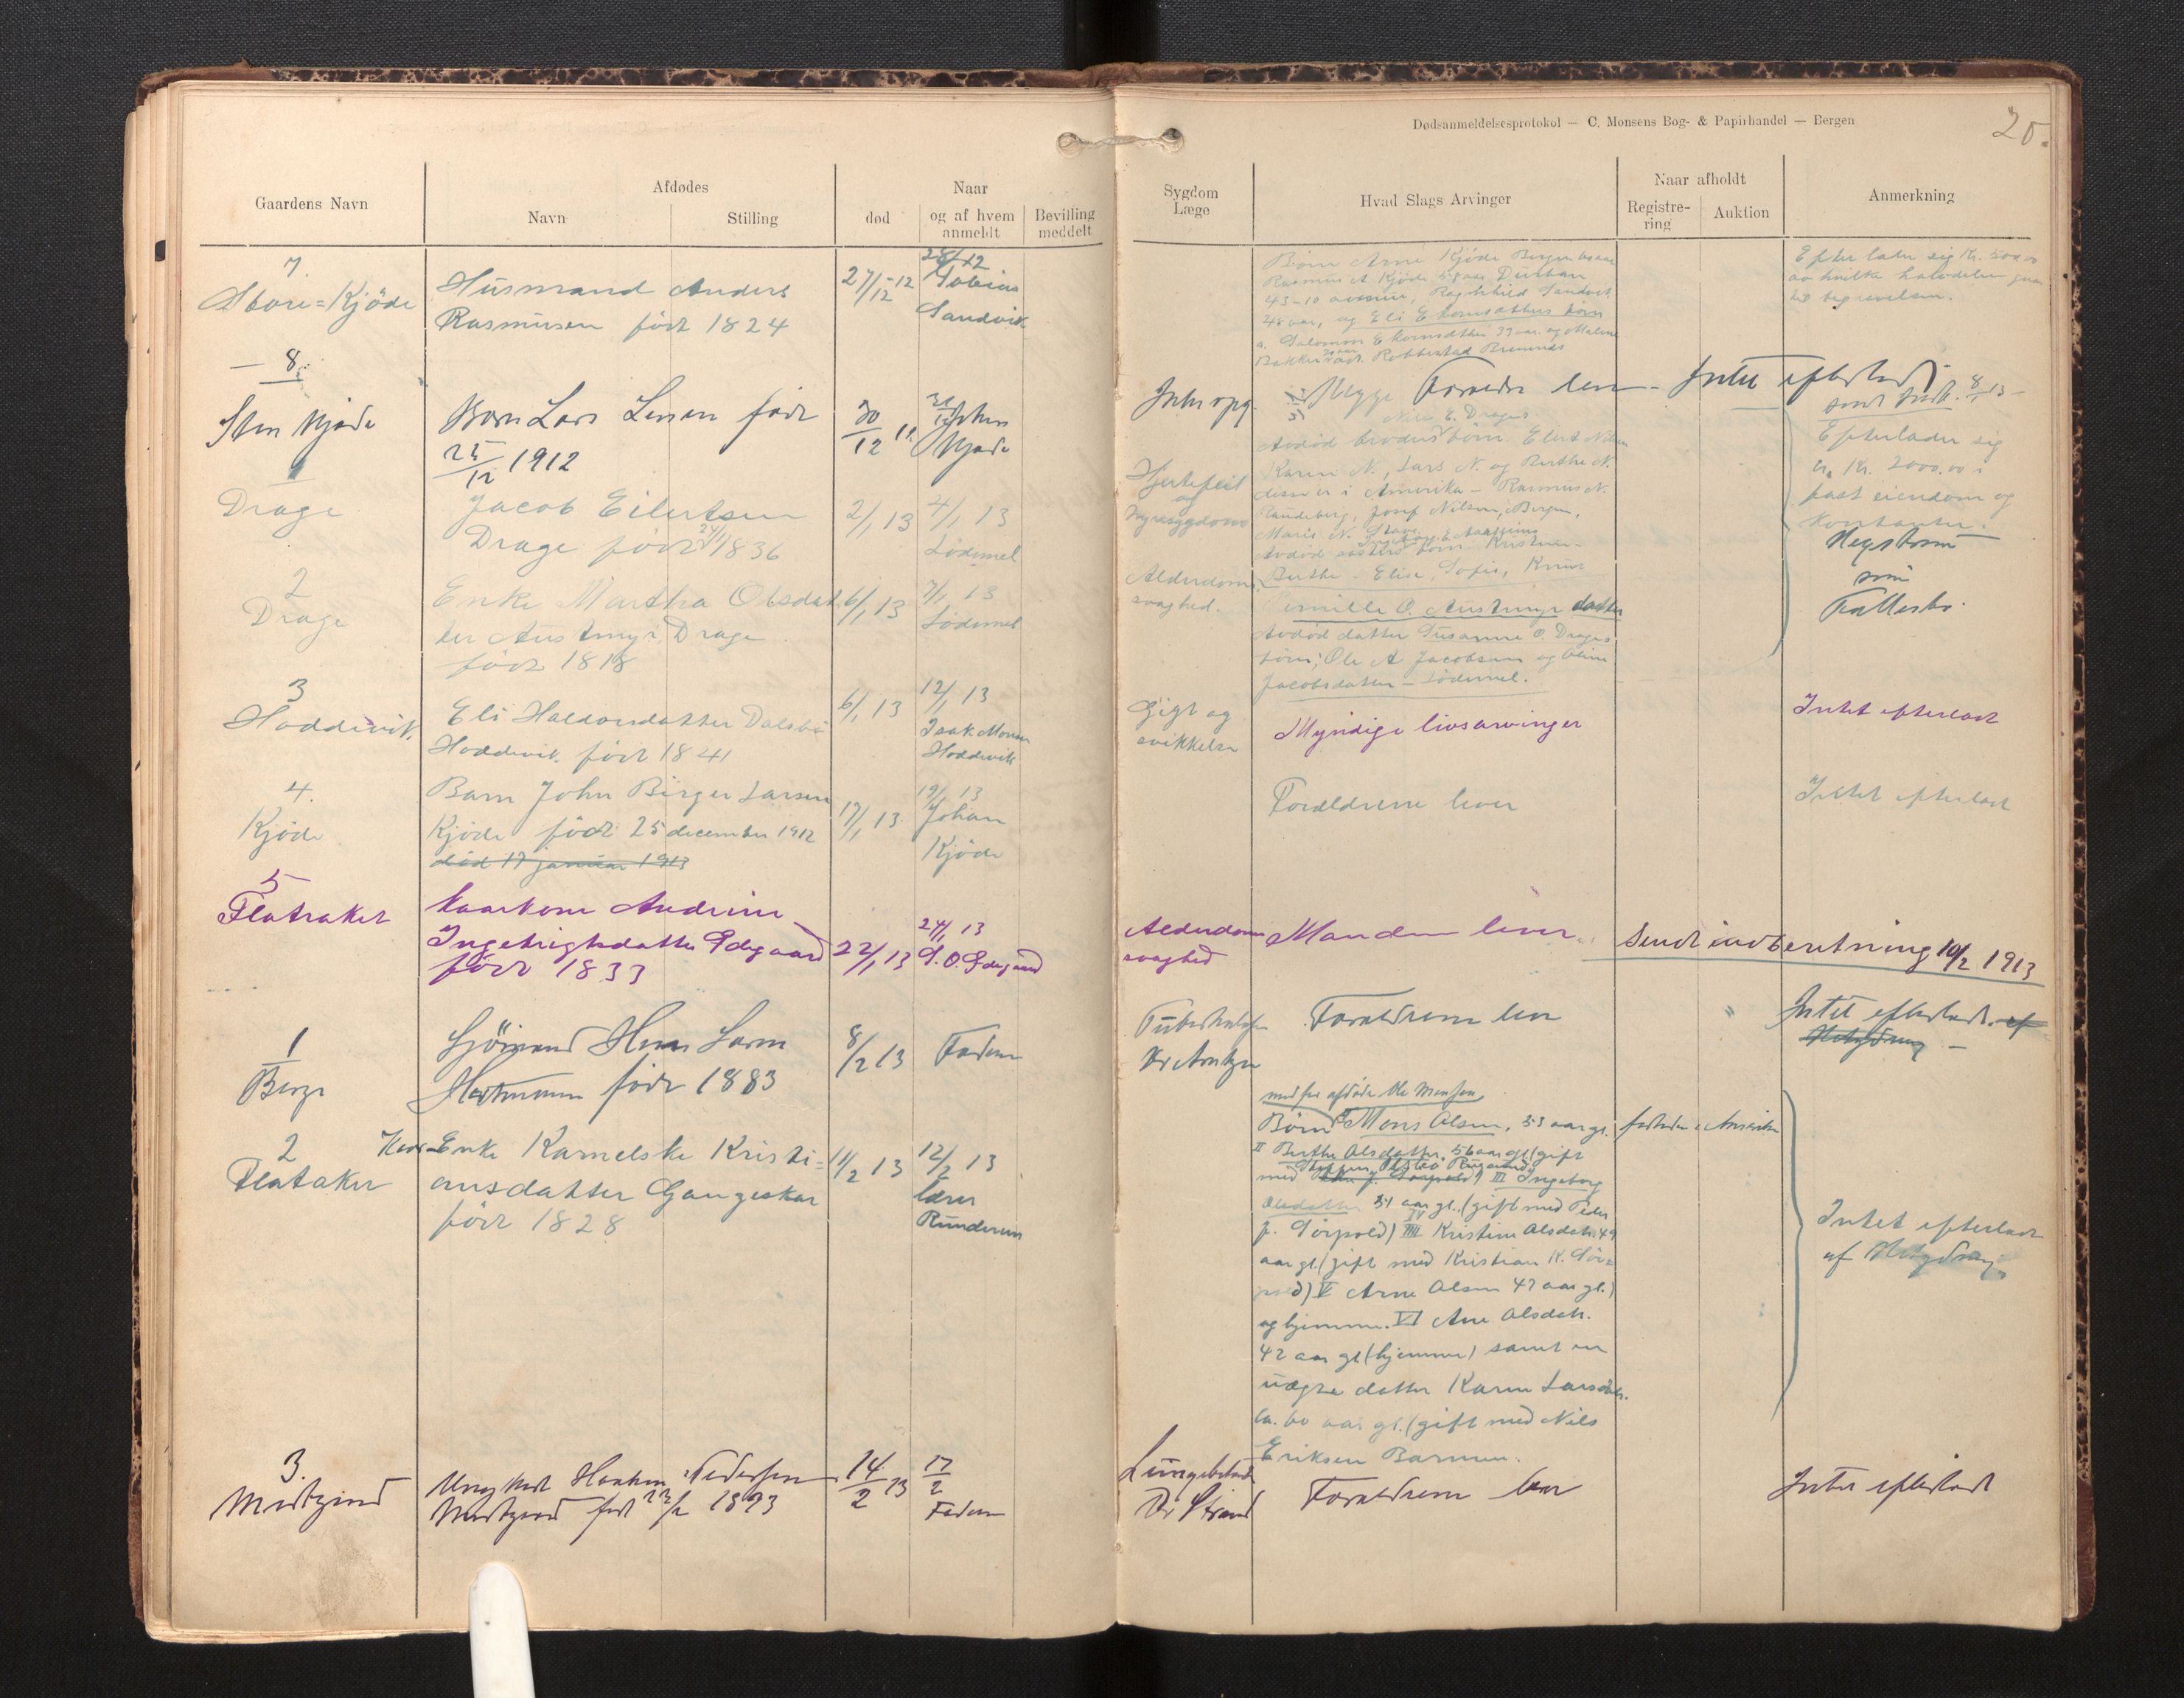 Dødsanmeldelsesprotokol — C. Monsens Bog- & Papirhandel — Bergen
20.
Gaardens Navn
Afdødes
Navn
Stilling
død
Naar
og af hvem
anmeldt
Bevilling
meddelt
Sygdom
Læge
Hvad Slags Arvinger
Naar afholdt
Registre-
ring
Auktion
Anmerkning
7.
Store=Kjöde
Husmand Anders
Rasmusen född 1824
27/12-12
28/12 12
Tobias
Sandvik
Børn Arne Kjöde Bergen
Rasmus A Kjöde 58 aar Durban
43-10 avenue, Ragnhild Sandvik
48 aar, og Eli
a. Salomon 33 aar og
Bakke Robbestad Bremnes
Efterlader sig Kr. 500.00
av hvilke halvdelen
til begravelsen.
8.
Sten Kjøde
Barn Lars Larsen født
25/12 1912
30/12 12
31/12 Johan
Kjøde
Forældre lever
Intet efterladt
sendt Indb. 8/1 13
1
Drage
Jacob Eilertsen
Drage född 24/11 1836
2/1 13
4/1 13
Lödemel
Hjertefeil
og
Avdød broders børn. Elert Nilsen
Karen N., Lars N. og Berthe N.
disse er i Amerika — Rasmus N.
Raudeberg, Josef Nilsen, Bergen,
Marie N. Stave
Avdød søsters børn. Kristine
Berthe. Elise, Sofie,
Efterlader sig
ca. Kr. 2000.00 i
fast eiendom og
kontanter.
2
Drage
Enke Martha Olsdat
ter Austmyr, Drage
född 1818
6/1 13
7/1 13
Lödemel
Alderdoms
svaghed.
Pernille O. Austmyr datter
Avdød datter Susanne O. Drages
børn; Ole A Jacobsen og Oline
Jacobsdatter — Lödemel.
3
Hoddevik.
Eli Haldorsdatter Dalsbö
Hoddevik. född 1841
6/1 13
12/1 13
Isak Monsen
Hoddevik
Gigt og
svikkelse
Myndige livsarvinger
Intet efterladt
4.
Kjöde
Barn John Birger Larsen
Kjöde född 25 december 1912
död 17 januar 1913
17/1 13
19/1 13
Johan
Kjöde
Forældrene lever
Intet efterladt
5
Flatraket
Kaarkone Andrine
Ingebrigtsdatter Ödegaard
född 1833
22/1 13
24/1 13
S. O. Ödegaard
Alderdoms
svaghed
Manden lever.
Sendt indberetning 10/2 1913
1
Berge
Sjömand Hans Larsen
Hartmann född 1883
8/2 13
Faderen
Tuberkulose
Forældrene lever
Intet efterladt. af
2
Flataker
Enke Karnelske Kristi=
ansdatter Gangeskar
född 1828
11/2 13
12/2 13
lærer
Runderem
med sin afdøde Ole Monsen
Børn I Mons Olsen, 53 aar gl. Amerika
II Berthe Olsdatter, 56 aar gl. (gift
med III Ingeborg
Olsdatter 51 aar gl. (gift med Peder
J. Sörpold) IV Kristine Olsdatr. 49
aar gl. (gift med Kristian K. Sör=
pold) V Arne Olsen 47 aar gl.)
og hjemme. VI Ane Olsdatr.
42 aar gl. (hjemme) samt en
uægte datter Karen Larsdatr.
ca. 60 aar gl. (gift med Nils
Eriksen Barmen.
Intet efterladt
af
3.
Ungkarl Haakon Pedersen
født 1893
14/2 13
17/2
Faderen
Dr Strand
Forældrene lever
Intet efterladt